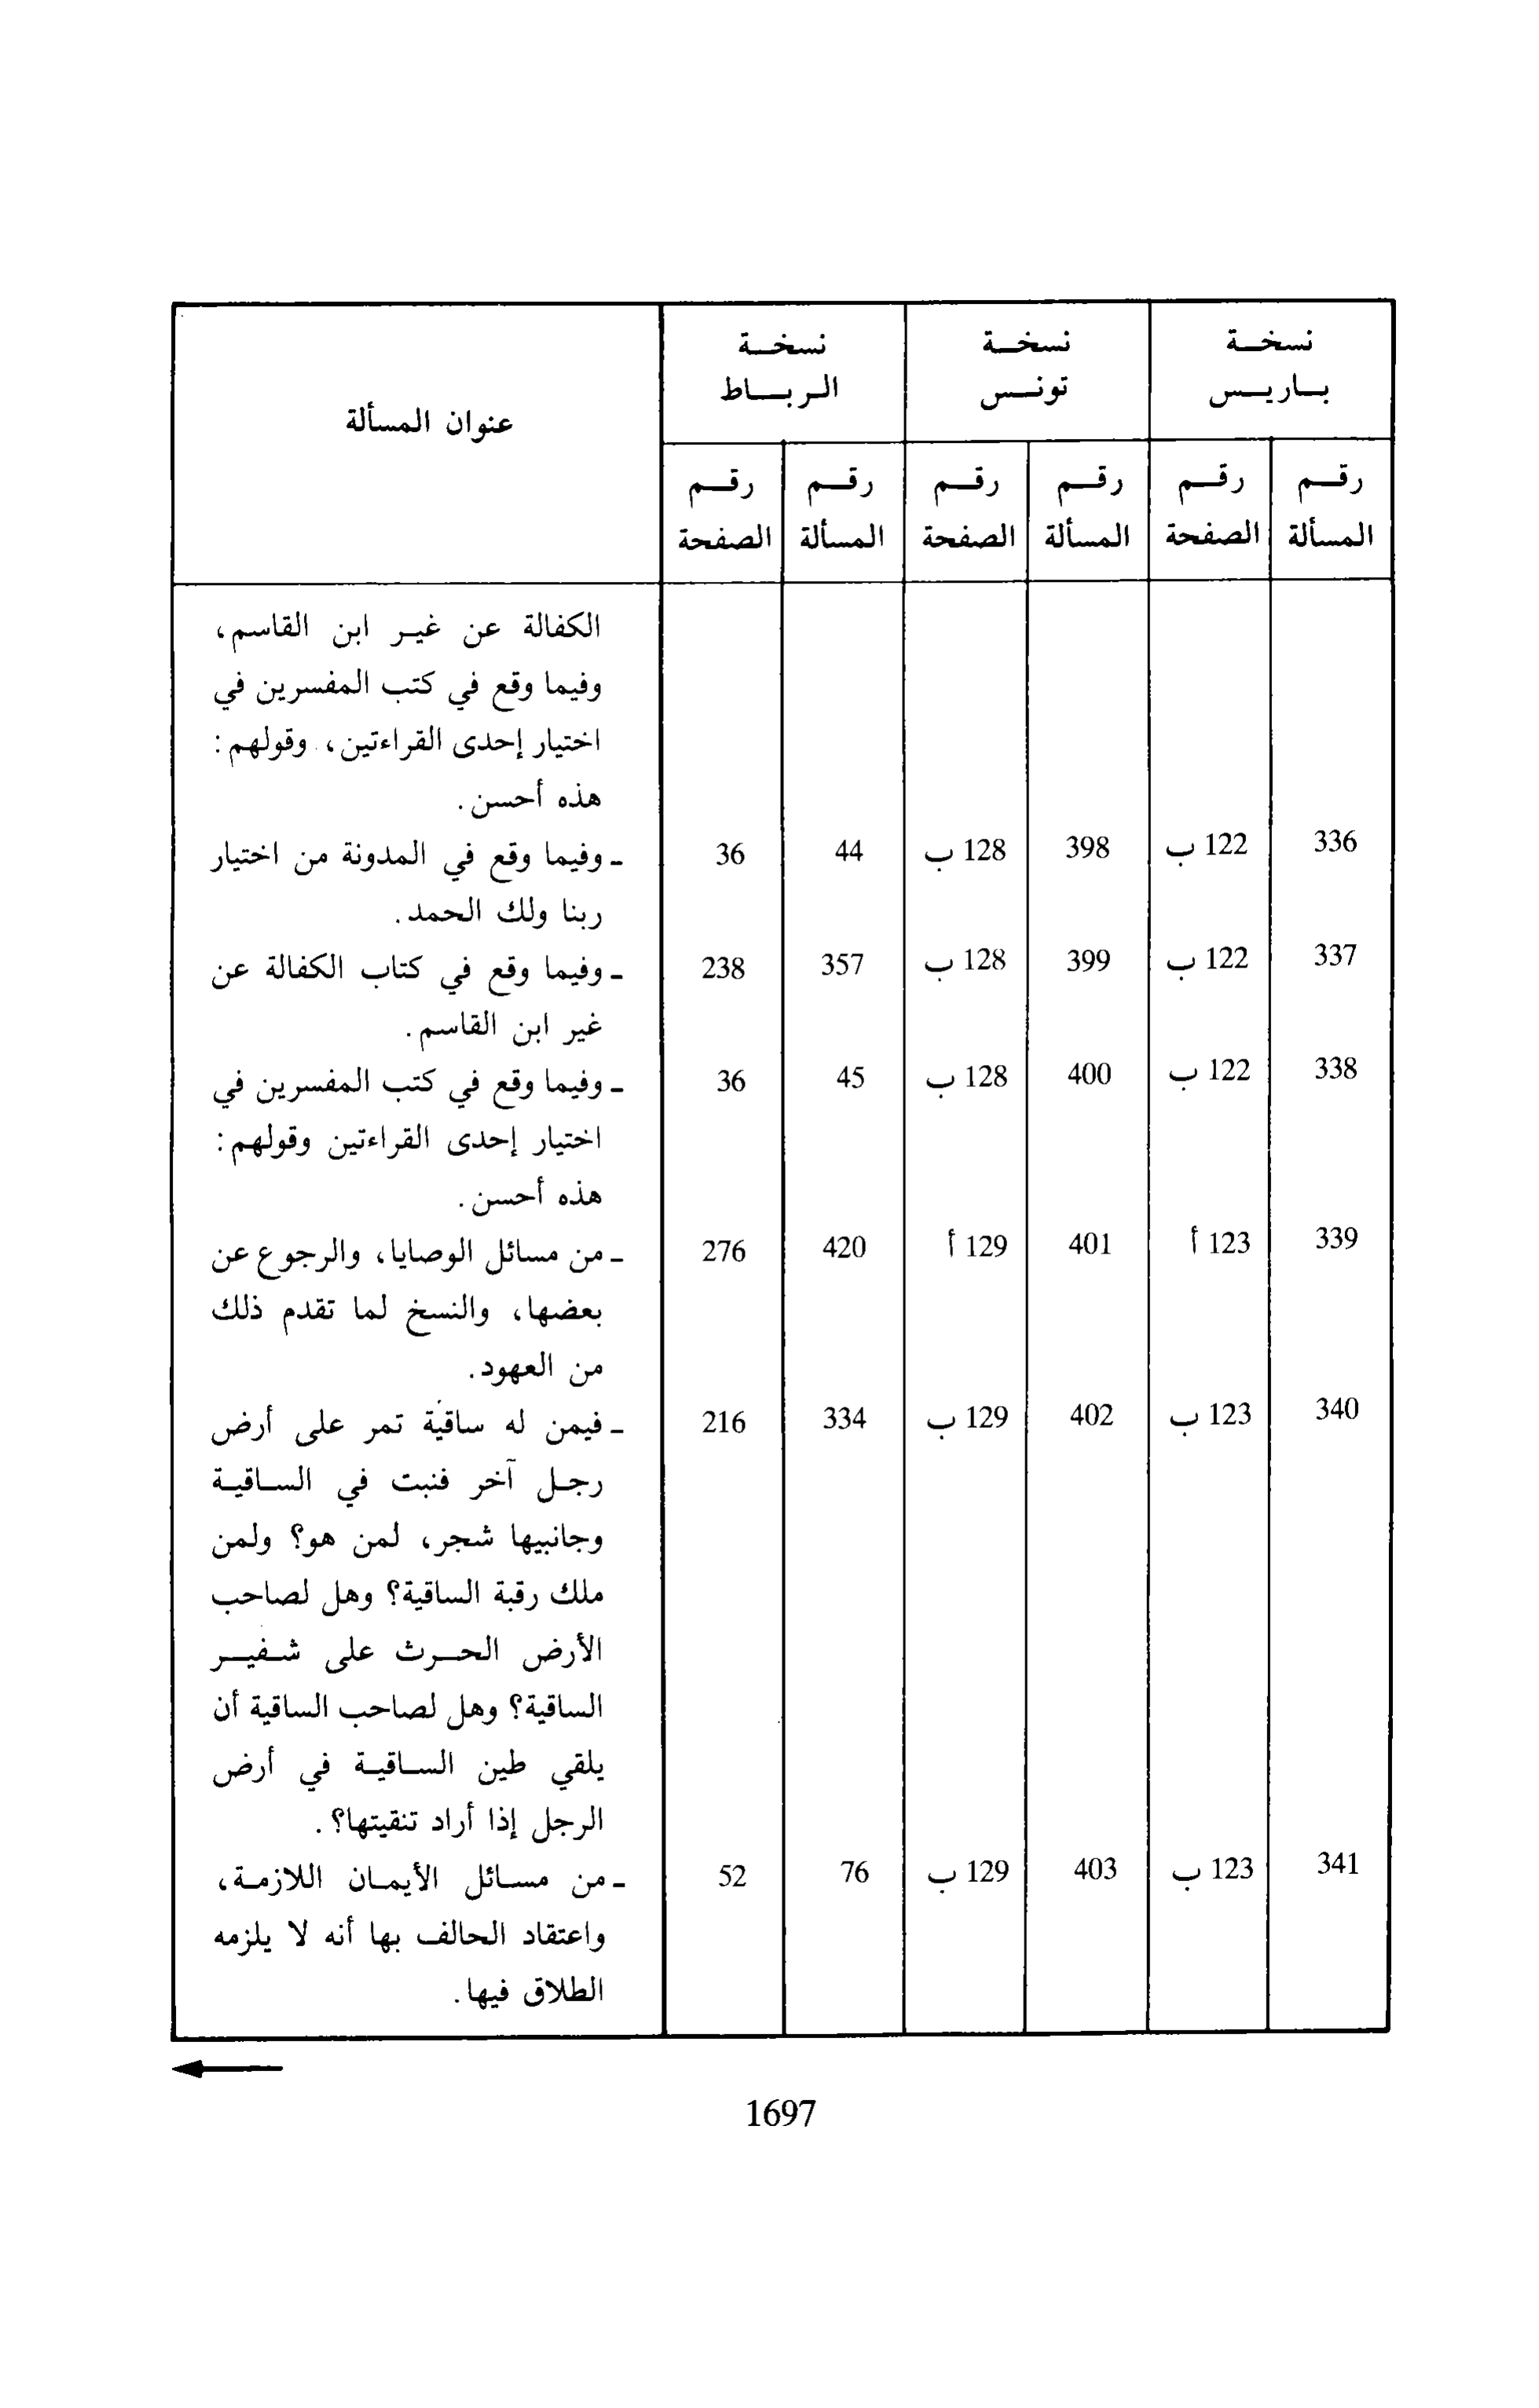 نسخة نسخة نسخة
باريس تونس الرباط
عنوان المسألة
رقم رقم رقم رقم رقم رقم
المسألة الصفحة المسألة الصفحة المسألة الصفحة
الكفالة عن غير ابن القاسم،
وفيما وقع في كتب المفسرين في
اختيار إحدى القراءتين، وقولهم:
هذه أحسن.
336 122 ب 398 128 ب 44 36 - وفيما وقع في المدونة من اختيار
ربنا ولك الحمد.
337 122 ب 399 128 ب 357 238 - وفيما وقع في كتاب الكفالة عن
غير ابن القاسم.
338 122 ب 400 128 ب 45 36 - وفيما وقع في كتب المفسرين في
اختيار إحدى القراءتين وقولهم:
هذه أحسن.
339 123 أ 401 129 أ 420 276 - من مسائل الوصايا، والرجوع عن
بعضها، والنسخ لما تقدم ذلك
من العهود.
340 123 ب 402 129 ب 334 216 - فيمن له ساقية تمر على أرض
رجل آخر فنبت في الساقية
وجانبيها شجر، لمن هو؟ ولمن
ملك رقبة الساقية؟ وهل لصاحب
الأرض الحرث على شفير
الساقية؟ وهل لصاحب الساقية أن
يلقي طين الساقية في أرض
الرجل إذا أراد تنقيتها؟.
341 123 ب 403 129 ب 76 52 - من مسائل الأيمان اللازمة،
واعتقاد الحالف بها أنه لا يلزمه
الطلاق فيها.
1697